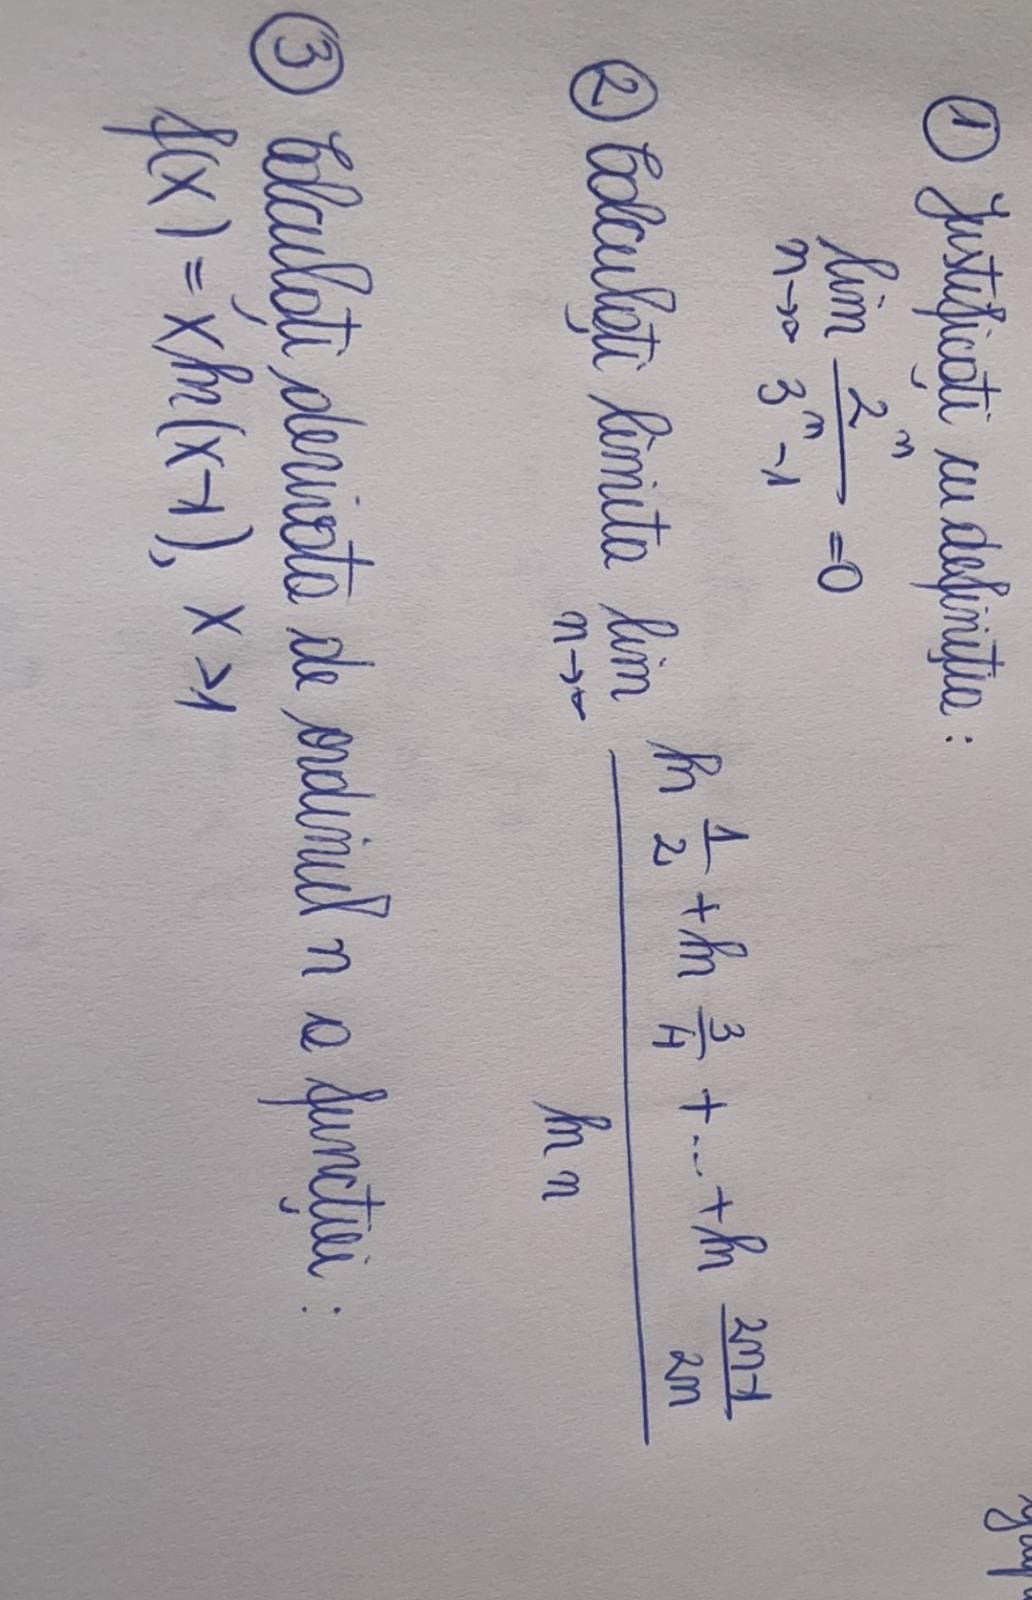 ① Justificați cu definiția:
lim n→∞ 2^n / (3^n - 1) = 0
② Calculați limita lim n→∞ (ln 1/2 + ln 3/4 + ... + ln (2n-1)/2n) / ln n
③ Calculați derivata de ordinul n a funcției:
f(x) = x ln(x-1), x > 1